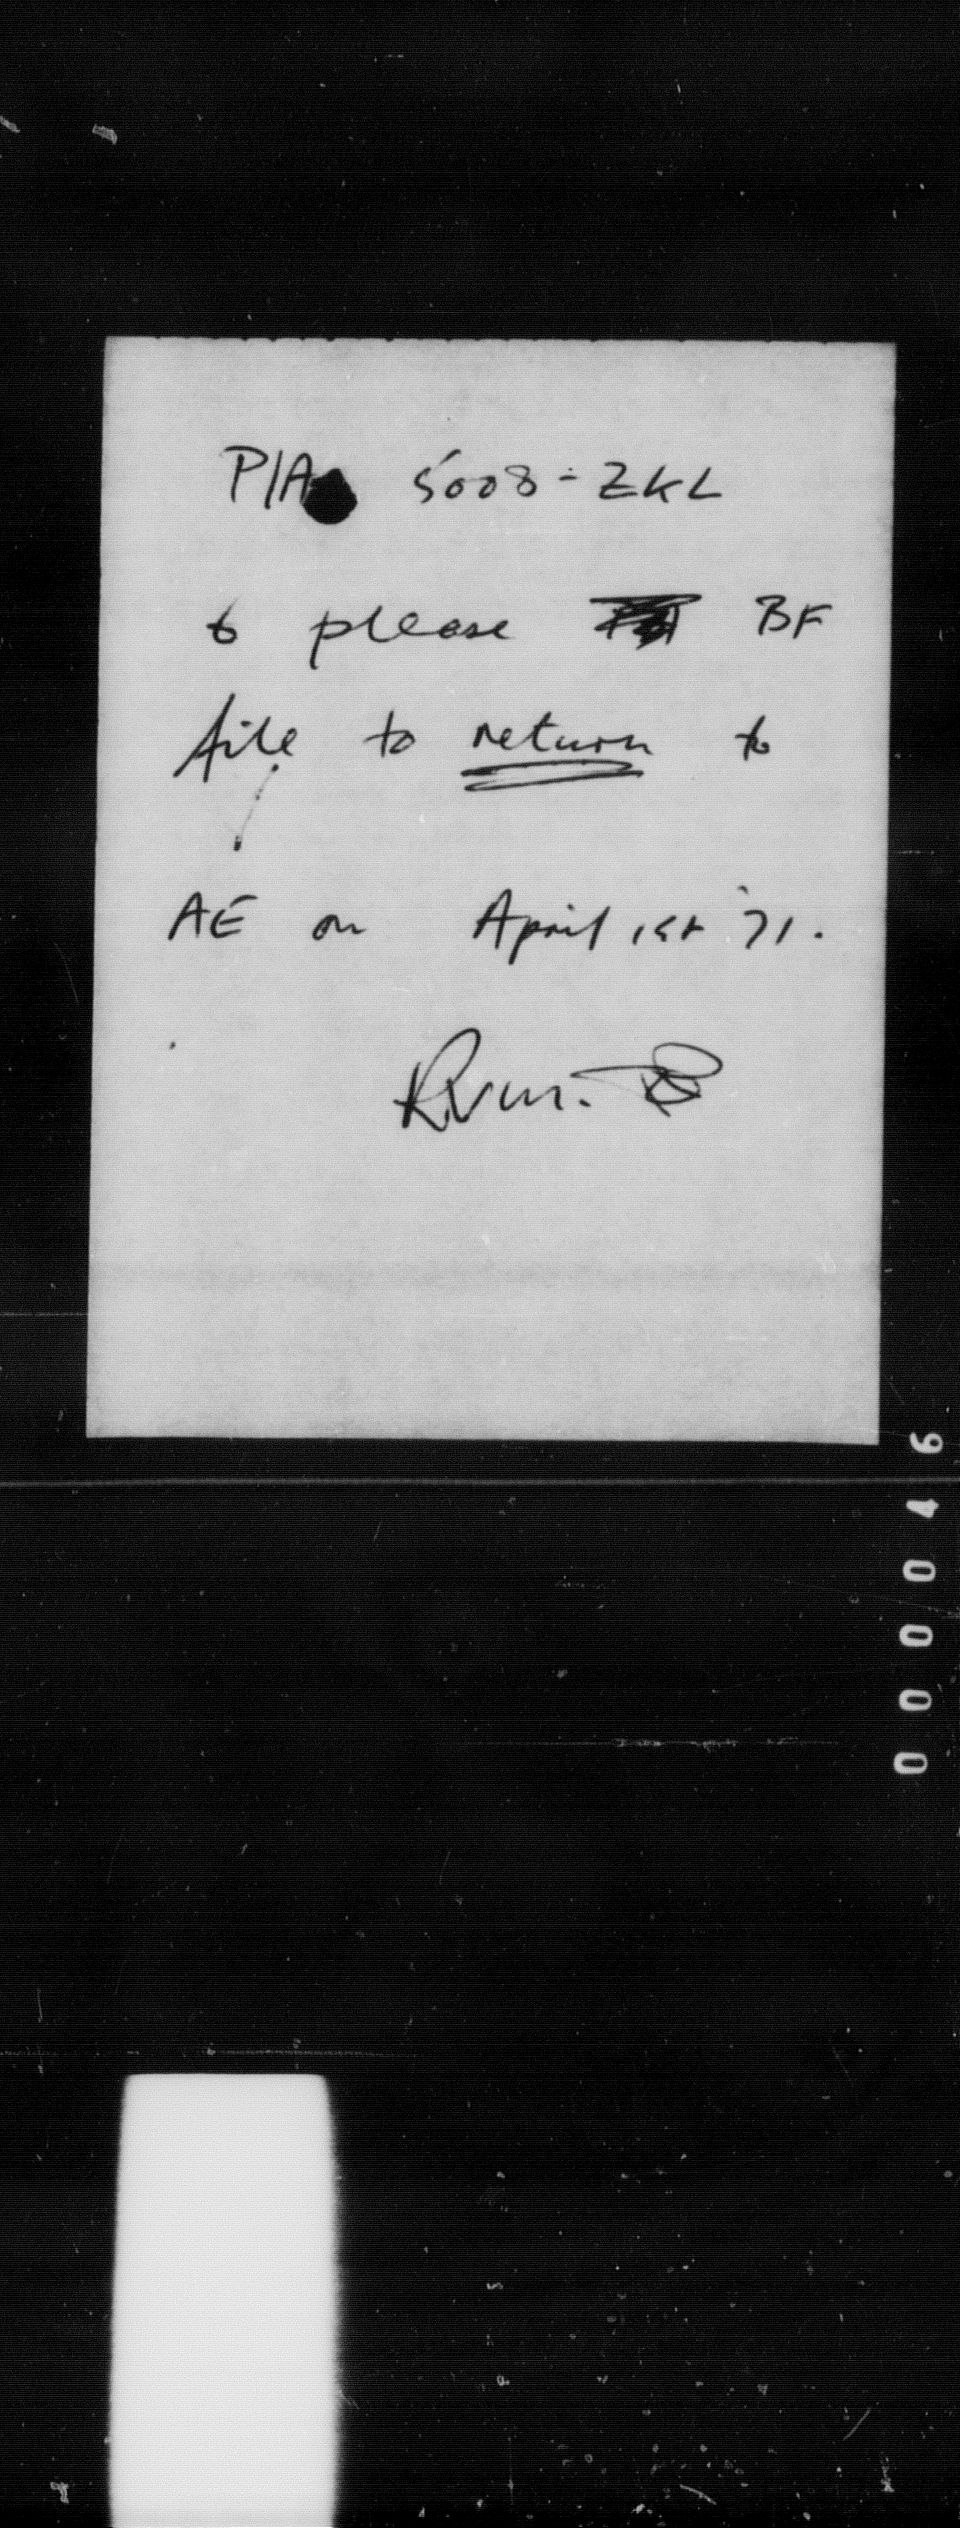 P/A 5008-ZKL
to please BF
file to return to
AE on April 1st '71.
000046